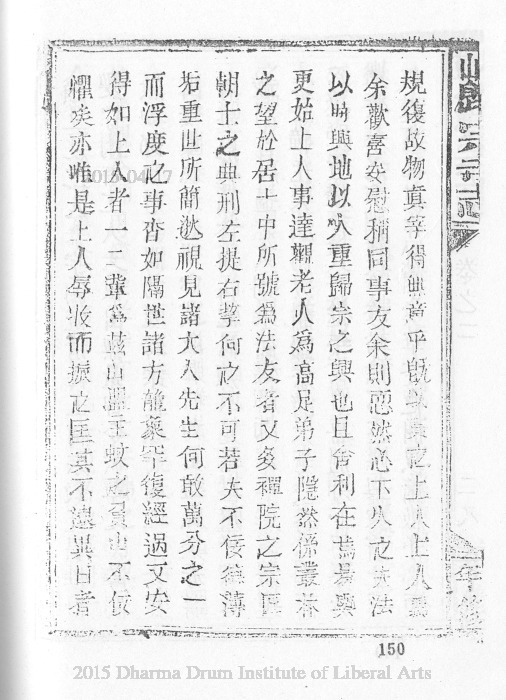 規復故物真等得無意乎既以責之上人上人
余歡喜安慰稱同事友余則恧然心下久之夫法
以時興地以人重歸宗之興也且舍利在焉
更始上人事達觀老人為高足弟子隱然係叢林
之望於居士中所號為法友者又多禪院之宗匠
朝士之典刑左提右挈何之不可若夫不佞德薄
垢重世所簡遨視見諸大人先生何敢萬分之一
而浮度之事杳如隔世諸方龍象罕復經過又安
得如上人者一二輩為茲山盟主蚊之負山不佞
懼矣亦唯是上人辱收而振之匡其不遠異日者
2015.04.17
150
2015 Dharma Drum Institute of Liberal Arts